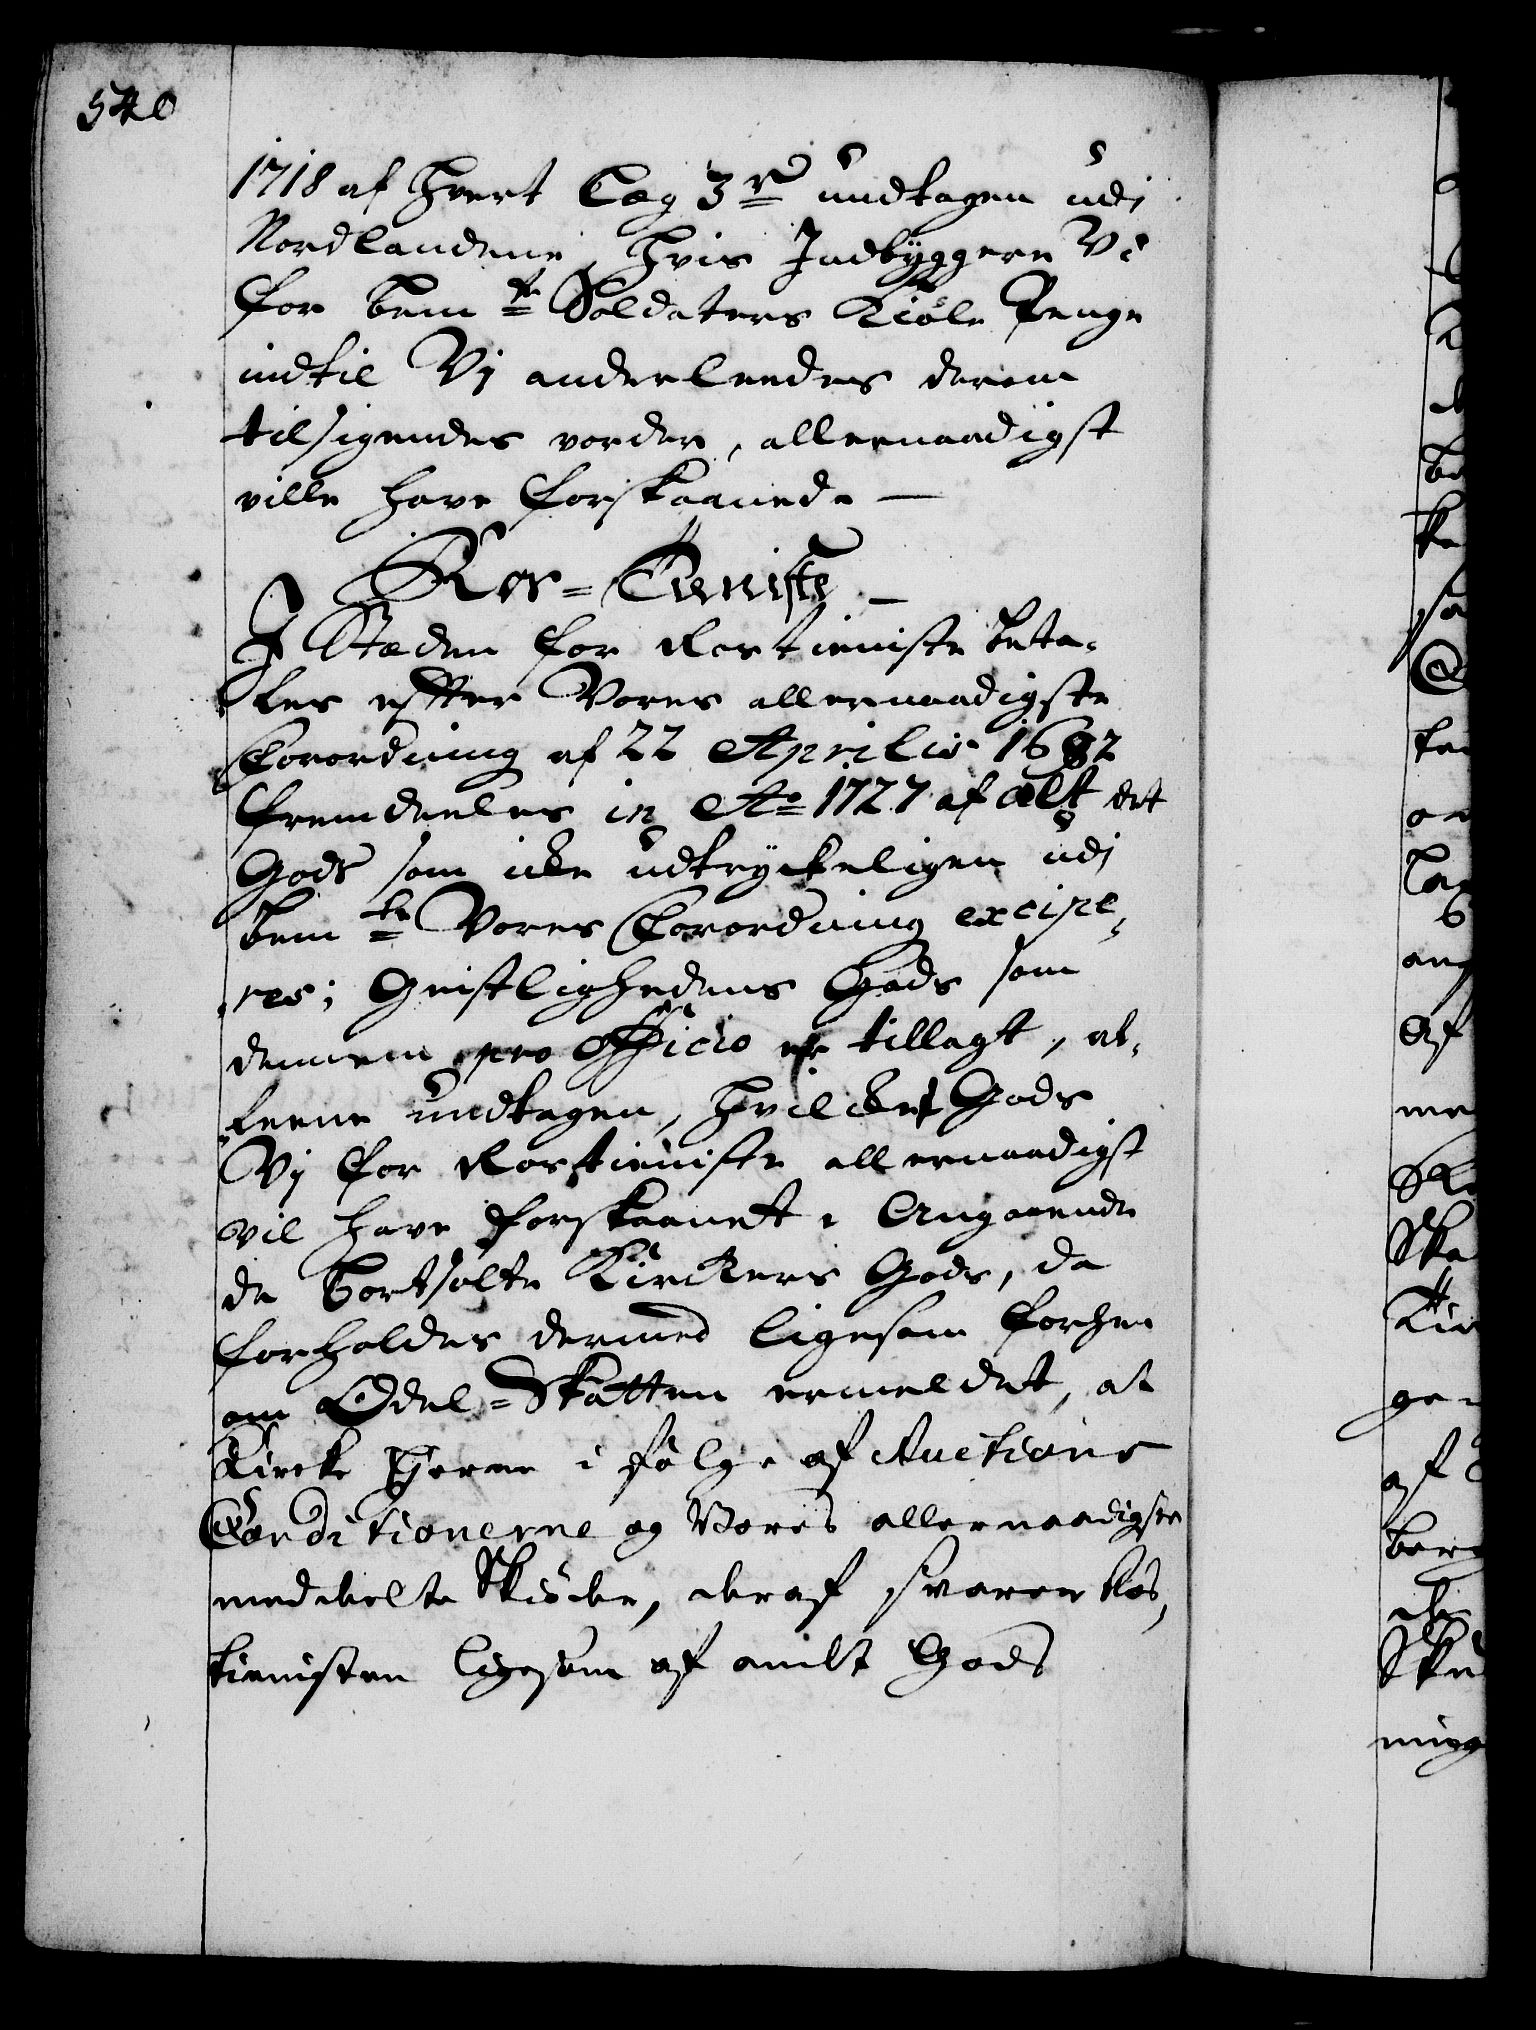 540
1718 af hvert Læg 3 rd undtagen udi
Nordlandene, hvis Indbyggere Vi
for bem.te Soldaters Kiole Penge
indtil Vj anderleedes derom
tilsigendes vorder, allernaadigst
ville have forskaanede –
Ros=Tieniste –
J Stæden for Rostieniste beta-
les efter Vores allernaadigste
Forordning af 22 Aprilis 1682
fremdeeles in Ao 1727 af alt det
Gods som icke udtryckeligen udi
bem.te Vores Forordning excipe-
res; Geistlighedens Gods som
dennem pro Officio er tillagt, al-
leene undtagen, hvilcket Gods
Vj for Rostieniste allernaadigst
vil have forskaanet. Angaaende
de bortsolte Kirckers Gods, da
forholdes dermed ligesom forhen
om Odel=Skatten ermeldet, at
Kircke Eyerne i følge af Auctions
Conditionerne og Vores allernaadigste
meddelte Skiøder, deraf svarer Ros-
tienisten ligesom af andet Gods